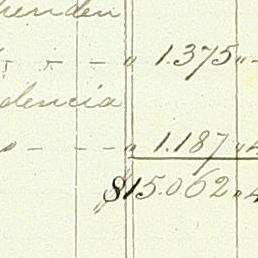 henden
" 1.375 " -
dencia
" 1.187 " 4
" $15.062 " 4